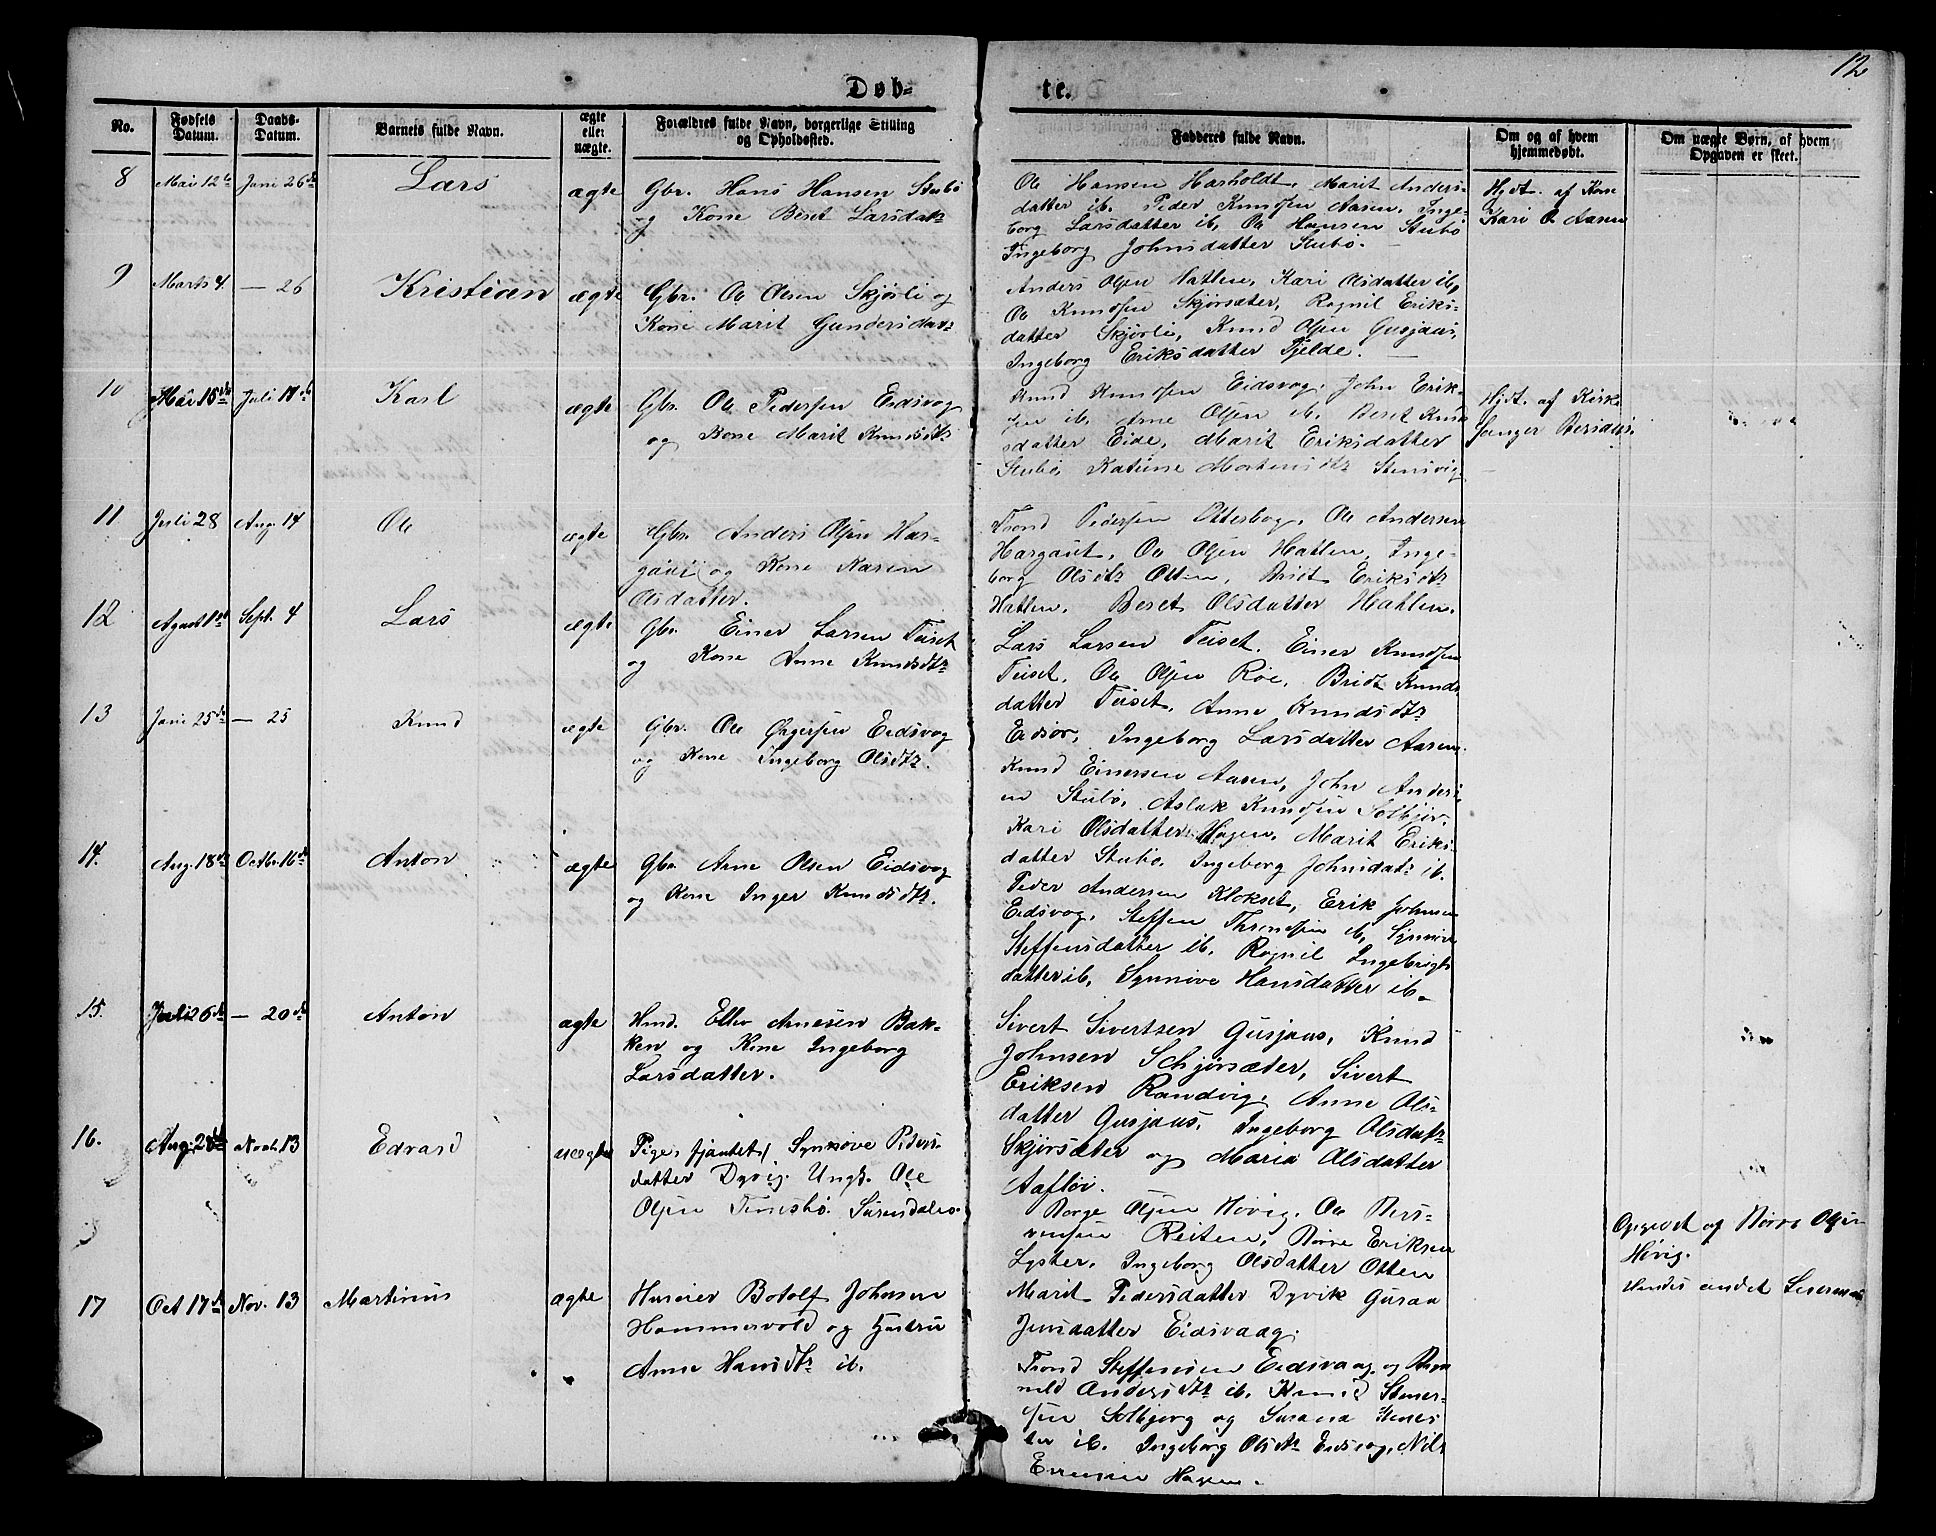 12
Døb-
te.
No.
Fødsels Datum.
Daabs- Datum.
Barnets fulde Navn.
ægte eller uægte.
Forældres fulde Navn, borgerlige Stilling og Opholdssted.
Fadderes fulde Navn.
Om og af hvem hjemmedøbt.
Om uægte Børn, af hvem Opgaven er skeet.
8
Mai 12te
Juni 26de
Lars
ægte
Gbr. Hans Hansen Stubø
og Kone Beret Larsdatr
Ole Hansen Marit Anders-
datter ib. Peder Knudsen Aasen, Inge-
borg Larsdatter ib, Ole Hansen Stubø
Ingeborg Johnsdatter Stubø.
Hjdt. af Kone
Kari O. Aasen
9
Marts 4.
— 26
Kristian
ægte
Gbr. Ole Olsen Skjørli og
Kone Marit Gundersdatr
Anders Olsen Hatlen, Kari Olsdatter ib,
Ole Knudsen Skjørsæter, Ragnil Eriks-
datter Skjørli, Knud Olsen Gusjaas,
Ingeborg Eriksdatter Fjelde.
10
Mai 15de
Juli 17de
Karl
ægte
Gbr. Ole Pedersen Eidsvog
og Kone Marit Knudsdtr
Knud Knudsen Eidsvog, John Erik-
sen ib. Arne Olsen ib. Beret Knud
sdatter Eide, Marit Eriksdatter
Stubø, Mortensdtr Stensvig
Hjdt. af Kirke
sanger
11
Juli 28
Aug. 14
Ole
ægte
Gbr. Anders Olsen Har-
gaut og Kone Karen
Olsdatter.
Trond Pedersen Otterbog, Ole Andersen
Hargaut, Ole Olsen Hatlen, Inge-
borg Olsdtr Otten, Eriksdtr
Hatlen, Beret Olsdatter Hatlen.
12
August 1ste
Sept. 4
Lars
ægte
Gbr. Einer Larsen Teiset
og Kone Anne Knudsdtr
Lars Larsen Teiset, Einer Knudsen
Teiset, Ole Olsen Roe, Knuds
datter Teiset, Anne Knudsdtr
Eidsør, Ingeborg Larsdatter Aasen.
13
Juni 25de
— 25
Knud
ægte
Gbr. Ole Eidsvog
og Kone Ingeborg Olsdtr.
Knud Einersen Aasen, John Anders
en Stubø, Aslak Knudsen Solbjør,
Kari Olsdatter Hagen, Marit Eriks-
datter Stubø, Ingeborg Johnsdatr ib.
14.
Aug. 18de
Octbr. 16de
Anton
ægte
Gbr. Arne Olsen Eidsvog
og Kone Inger Knudsdtr.
Peder Andersen Klokset, Erik Johnsen
Eidsvog, Steffen ib, Synnøve
Steffensdatter ib, Ragnil Ingebrigts
datter ib, Synnøve Hansdatter ib.
15.
Juli 26de
— 20de
Anton
ægte
Hmd. Ellev Arnesen Bak-
ken og Kone Ingeborg
Larsdatter.
Sivert Sivertsen Gusjaas, Knud
Johnsen Schjørsæter, Sivert
Eriksen Randvig, Anne Ols-
datter Gusjaas, Ingeborg Olsdatr
Skjørsæter og Maria Olsdatter
Aafløi.
16.
Aug. 28de
Novb. 13
Edvard
uægte
Pige, Synnøve Peders-
datter Dyvig. Ungk. Ole
Olsen Surendalen.
Børge Olsen Høvig, Ole
Reiten, Børre Eriksen
Lyster, Ingeborg Olsdatter Otten
Marit Pedersdatter Dyvik
Jensdatter Eidsvaag.
Opgivet af Børre Olsen
Høvig.
Hendes andet Leiermaal
17
Oct 17de
Nov. 13
Martinus
ægte
Botolf Johnsen
Hammervold og Hustru
Anne Hansdtr ib.
Trond Steffensen Eidsvaag og Rag
nild Andersdtr ib. Knud Stener-
sen Solbjørg og Susana
ib. Ingeborg Olsdtr Eidsvog, Nils
Hagen.